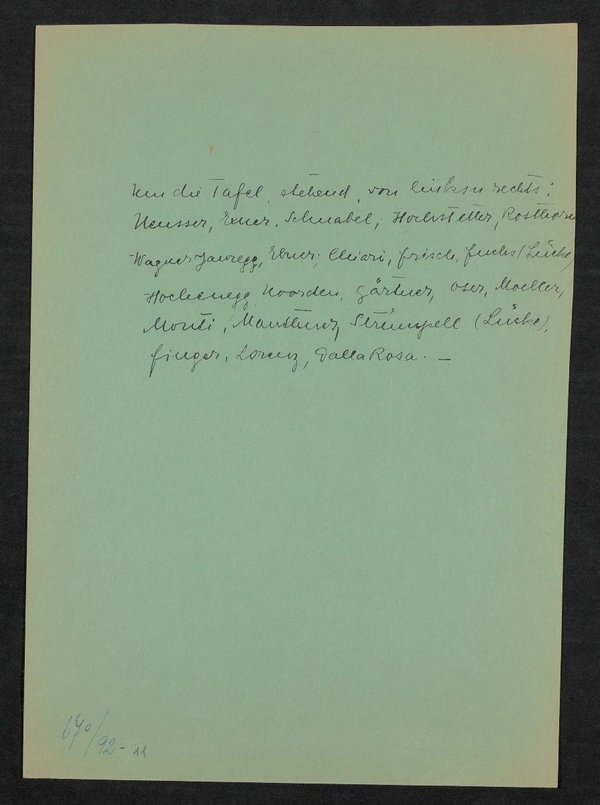 Um die Tafel, stehend, von links n rechts:
Neusser, Exner, Schnabel, Hochstetter, Rosthorn
Wagner-Jauregg, Ebner, Chiari, Frisch, Fuchs (Lücke)
Hochenegg, Noorden, Gärtner, Oser, Moeller,
Monti, Mauthner, Strümpell (Lücke),
Finger, Lorenz, Dalla Rosa. —
670/92-11